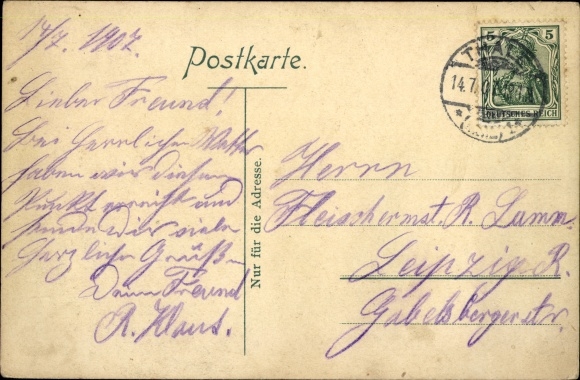 14/7. 1907.
Postkarte.
Lieber Freund!
Bei herrlichem Wetter
haben wir diesen
Punkt erreicht und
senden Dir viele
herzliche Grüße
Dein Freund
R. Klaus.
Nur für die Adresse.
THALE
14.7.
5 5
DEUTSCHES REICH
Herrn
Fleischermst. R. Lamm.
Leipzig R.
Gabelsbergerstr.